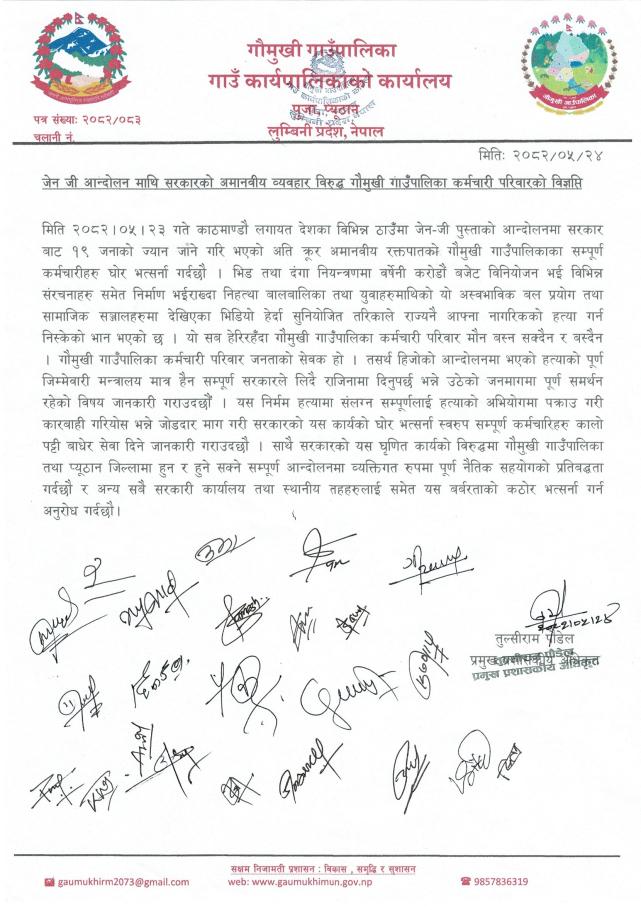 गौमुखी गाउँपालिका
गाउँ कार्यपालिकाको कार्यालय
पूजा, प्यूठान
लुम्बिनी प्रदेश, नेपाल
गौमुखी गाउँपालिका
पत्र संख्याः २०८२/०८३
चलानी नं.
मितिः २०८२/०५/२४
जेन जी आन्दोलन माथि सरकारको अमानवीय व्यवहार विरुद्ध गौमुखी गाउँपालिका कर्मचारी परिवारको विज्ञप्ति
मिति २०८२।०५।२३ गते काठमाण्डौ लगायत देशका विभिन्न ठाउँमा जेन-जी पुस्ताको आन्दोलनमा सरकार
बाट १९ जनाको ज्यान जाने गरि भएको अति क्रूर अमानवीय रक्तपातको गौमुखी गाउँपालिकाका सम्पूर्ण
कर्मचारीहरु घोर भत्सर्ना गर्दछौ । भिड तथा दंगा नियन्त्रणमा बर्षेनी करोडौं बजेट विनियोजन भई विभिन्न
संरचनाहरु समेत निर्माण भईराख्दा निहत्था बालबालिका तथा युवाहरुमाथिको यो अस्वभाविक बल प्रयोग तथा
सामाजिक सञ्जालहरुमा देखिएका भिडियो हेर्दा सुनियोजित तरिकाले राज्यनै आफ्ना नागरिकको हत्या गर्न
निस्केको भान भएको छ । यो सब हेरिरहँदा गौमुखी गाउँपालिका कर्मचारी परिवार मौन बस्न सक्दैन र बस्दैन
। गौमुखी गाउँपालिका कर्मचारी परिवार जनताको सेवक हो । तसर्थ हिजोको आन्दोलनमा भएको हत्याको पूर्ण
जिम्मेवारी मन्त्रालय मात्र हैन सम्पूर्ण सरकारले लिदै राजिनामा दिनुपर्छ भन्ने उठेको जनमागमा पूर्ण समर्थन
रहेको विषय जानकारी गराउदछौं । यस निर्मम हत्यामा संलग्न सम्पूर्णलाई हत्याको अभियोगमा पक्राउ गरी
कारवाही गरियोस भन्ने जोडदार माग गरी सरकारको यस कार्यको घोर भत्सर्ना स्वरुप सम्पूर्ण कर्मचारिहरु कालो
पट्टी बाधेर सेवा दिने जानकारी गराउदछौ । साथै सरकारको यस घृणित कार्यको विरुद्धमा गौमुखी गाउँपालिका
तथा प्यूठान जिल्लामा हुन र हुने सक्ने सम्पूर्ण आन्दोलनमा व्यक्तिगत रुपमा पूर्ण नैतिक सहयोगको प्रतिबद्धता
गर्दछौ र अन्य सबै सरकारी कार्यालय तथा स्थानीय तहहरुलाई समेत यस बर्बरताको कठोर भत्सर्ना गर्न
अनुरोध गर्दछौ।
तुल्सीराम पौडेल
प्रमुख प्रशासकीय अधिकृत
तुल्सीराम पौडेल
प्रमुख प्रशासकीय अधिकृत
सक्षम निजामती प्रशासन : विकास , समृद्धि र सुशासन
gaumukhirm2073@gmail.com
web: www.gaumukhimun.gov.np
9857836319